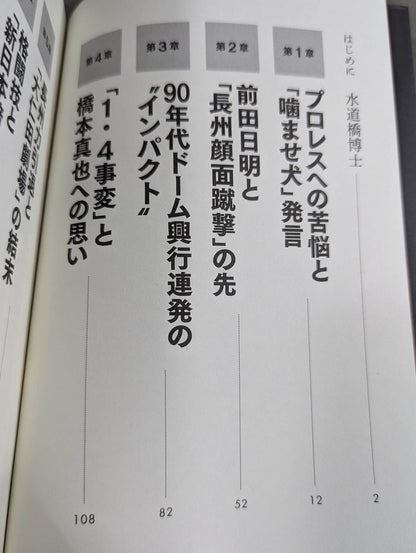 はじめに 水道橋博士
2
第1章
プロレスへの苦悩と
「噛ませ犬」発言
12
第2章
前田日明と
「長州顔面蹴撃」の先
52
第3章
90年代ドーム興行連発の
“インパクト”
82
第4章
「1・4事変」と
橋本真也への思い
108
「大仁田劇場」の結末
格闘技と